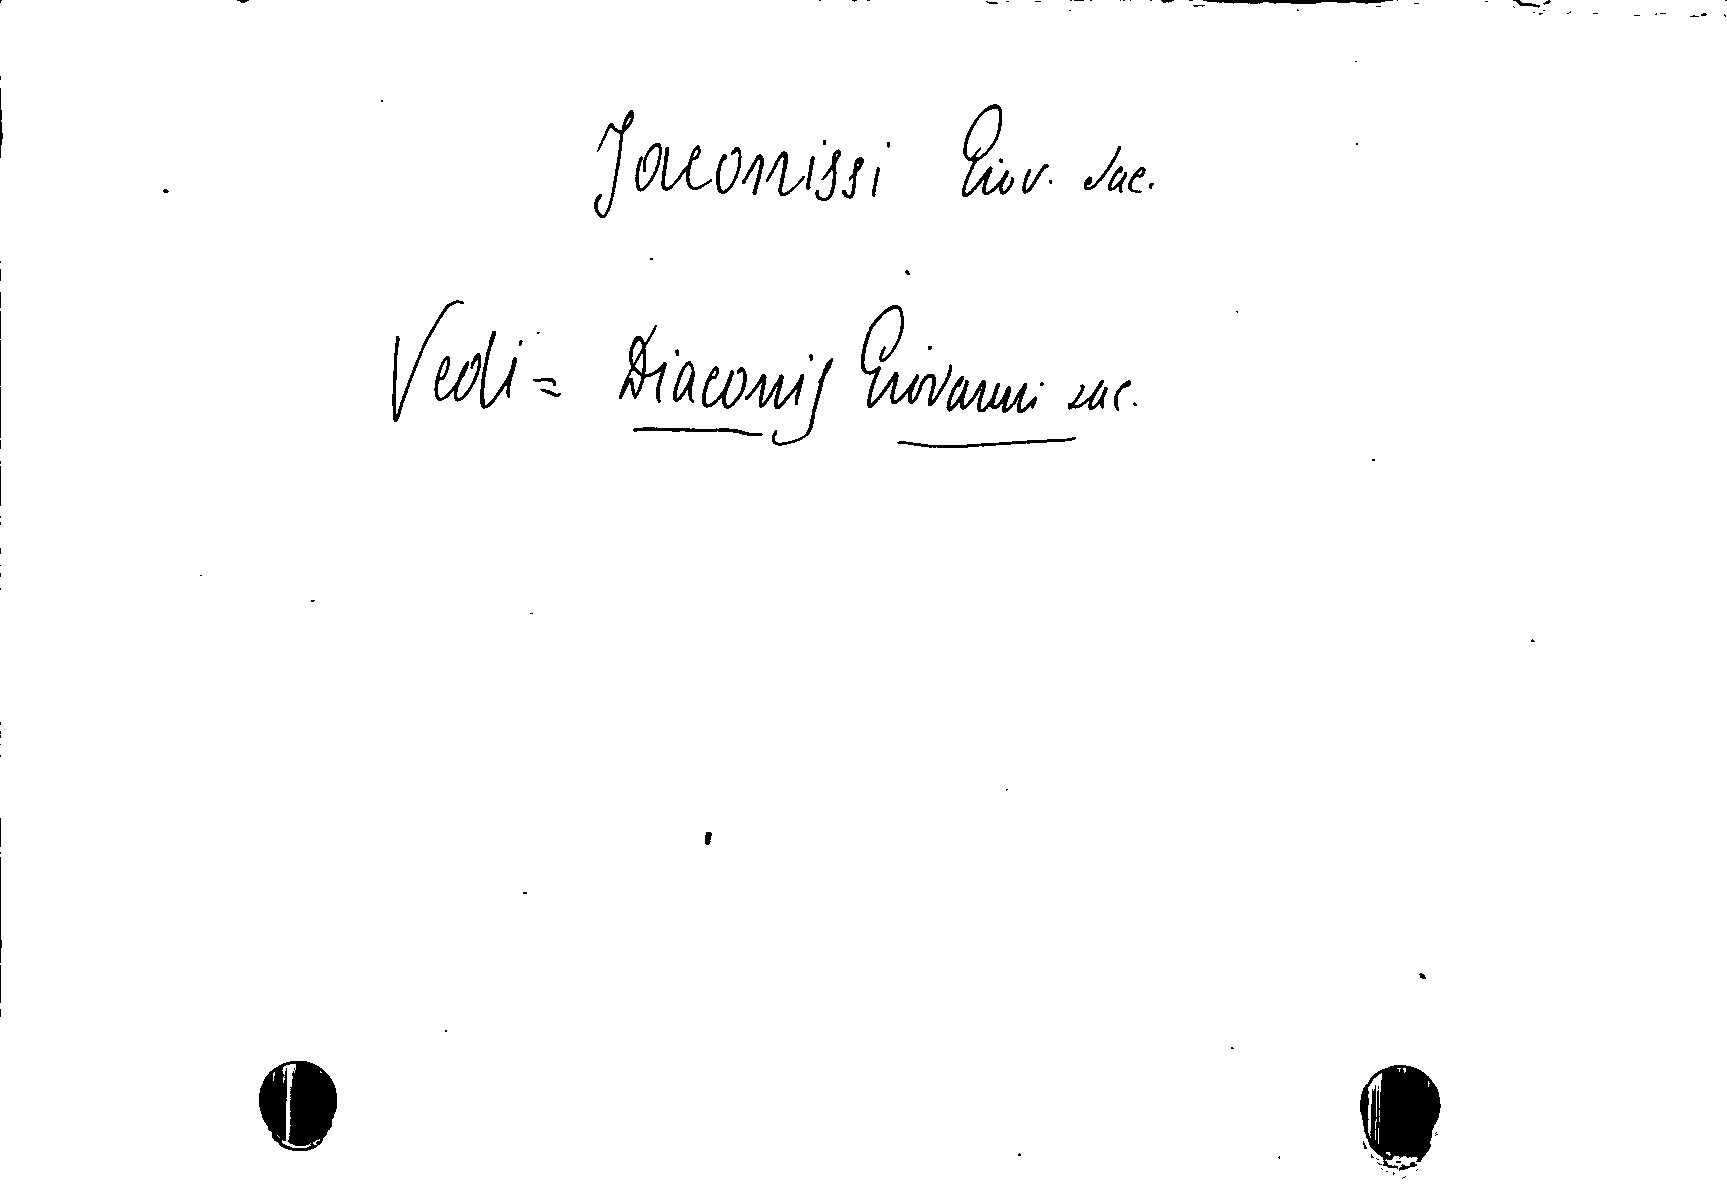 Jaconissi Giov. Sac.
Vedi = Diaconis Giovanni sac.